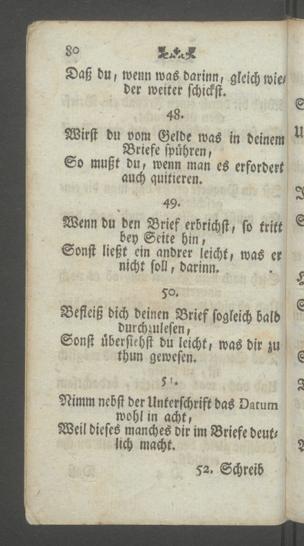 80
Daß du, wenn was darinn, gleich wie-
der weiter schickst.
48.
Wirst du vom Gelde was in deinem
Briefe spühren,
So mußt du, wenn man es erfordert
auch quitieren.
49.
Wenn du den Brief erbrichst, so tritt
bey Seite hin,
Sonst ließt ein andrer leicht, was er
nicht soll, darinn.
50.
Befleiß dich deinen Brief sogleich bald
durchzulesen,
Sonst übersiehst du leicht, was dir zu
thun gewesen.
51.
Nimm nebst der Unterschrift das Datum
wohl in acht,
Weil dieses manches dir im Briefe deut-
lich macht.
52. Schreib